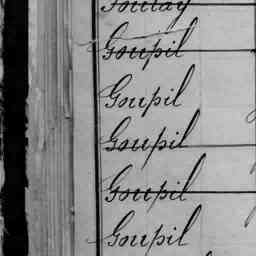 Goupil
Goupil
Goupil
Goupil
Goupil